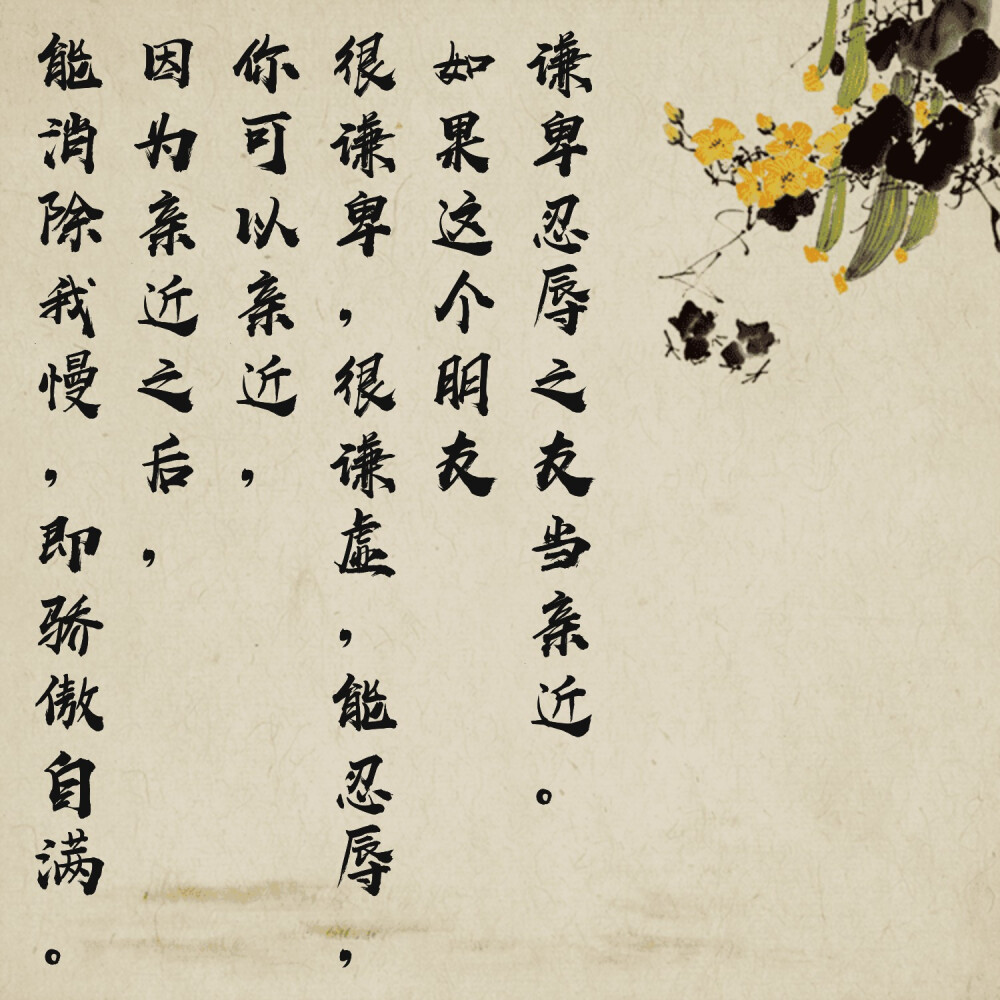 谦卑忍辱之友当亲近。
如果这个朋友
很谦卑，很谦虚，能忍辱，
你可以亲近，
因为亲近之后，
能消除我慢，即骄傲自满。